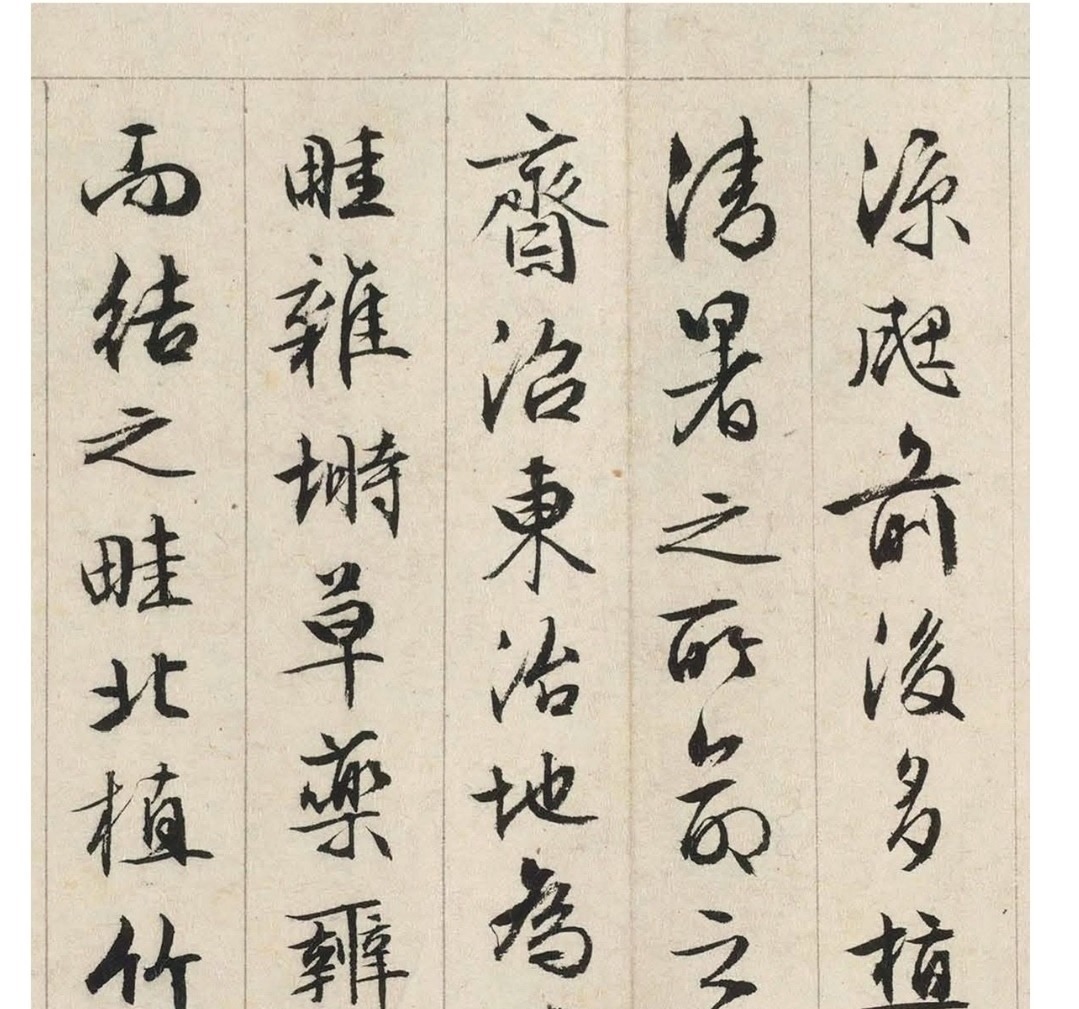 涼颸前後多植
清暑之所命之
齋沼東治地為
畦雜塒草藥辨
而結之畦北植竹